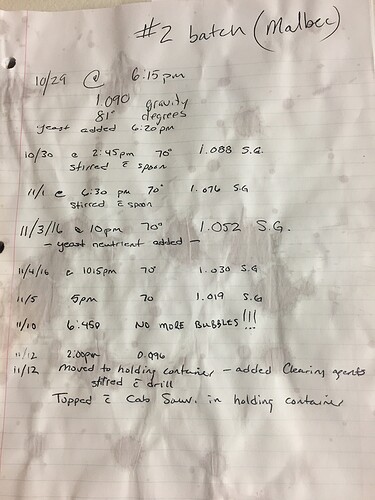 #2 batch (Malbec)
10/29 @ 6:15pm
1.090 gravity
81° degrees
yeast added 6:20pm
10/30 @ 2:45pm 70° 1.088 S.G.
stirred c̄ spoon
11/1 @ 6:30 pm 70° 1.076 S.G
stirred c̄ spoon
11/3/16 @ 10pm 70° 1.052 S.G.
- yeast nutrient added -
11/4/16 @ 1015pm 70° 1.030 S.G
11/5 5pm 70 1.019 S.G
11/10 6:45p NO MORE BUBBLES!!!
11/12 2:00pm 0.996
11/12 Moved to holding container - added Clearing agents
stirred c̄ drill
Topped c̄ Cab Sauv. in holding container